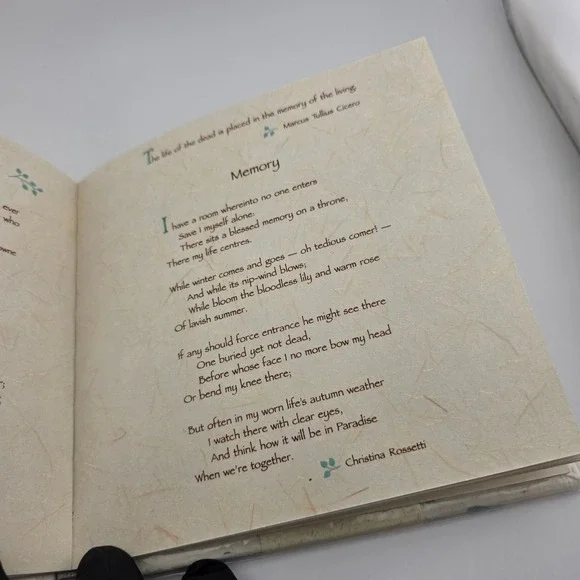 ever
who
The life of the dead is placed in the memory of the living.
Marcus Tullius Cicero
Memory
I have a room whereinto no one enters
Save I myself alone:
There sits a blessed memory on a throne,
There my life centres.
While winter comes and goes — oh tedious comer! —
And while its nip-wind blows;
While bloom the bloodless lily and warm rose
Of lavish summer.
If any should force entrance he might see there
One buried yet not dead,
Before whose face I no more bow my head
Or bend my knee there;
But often in my worn life's autumn weather
I watch there with clear eyes,
And think how it will be in Paradise
When we're together.
Christina Rossetti